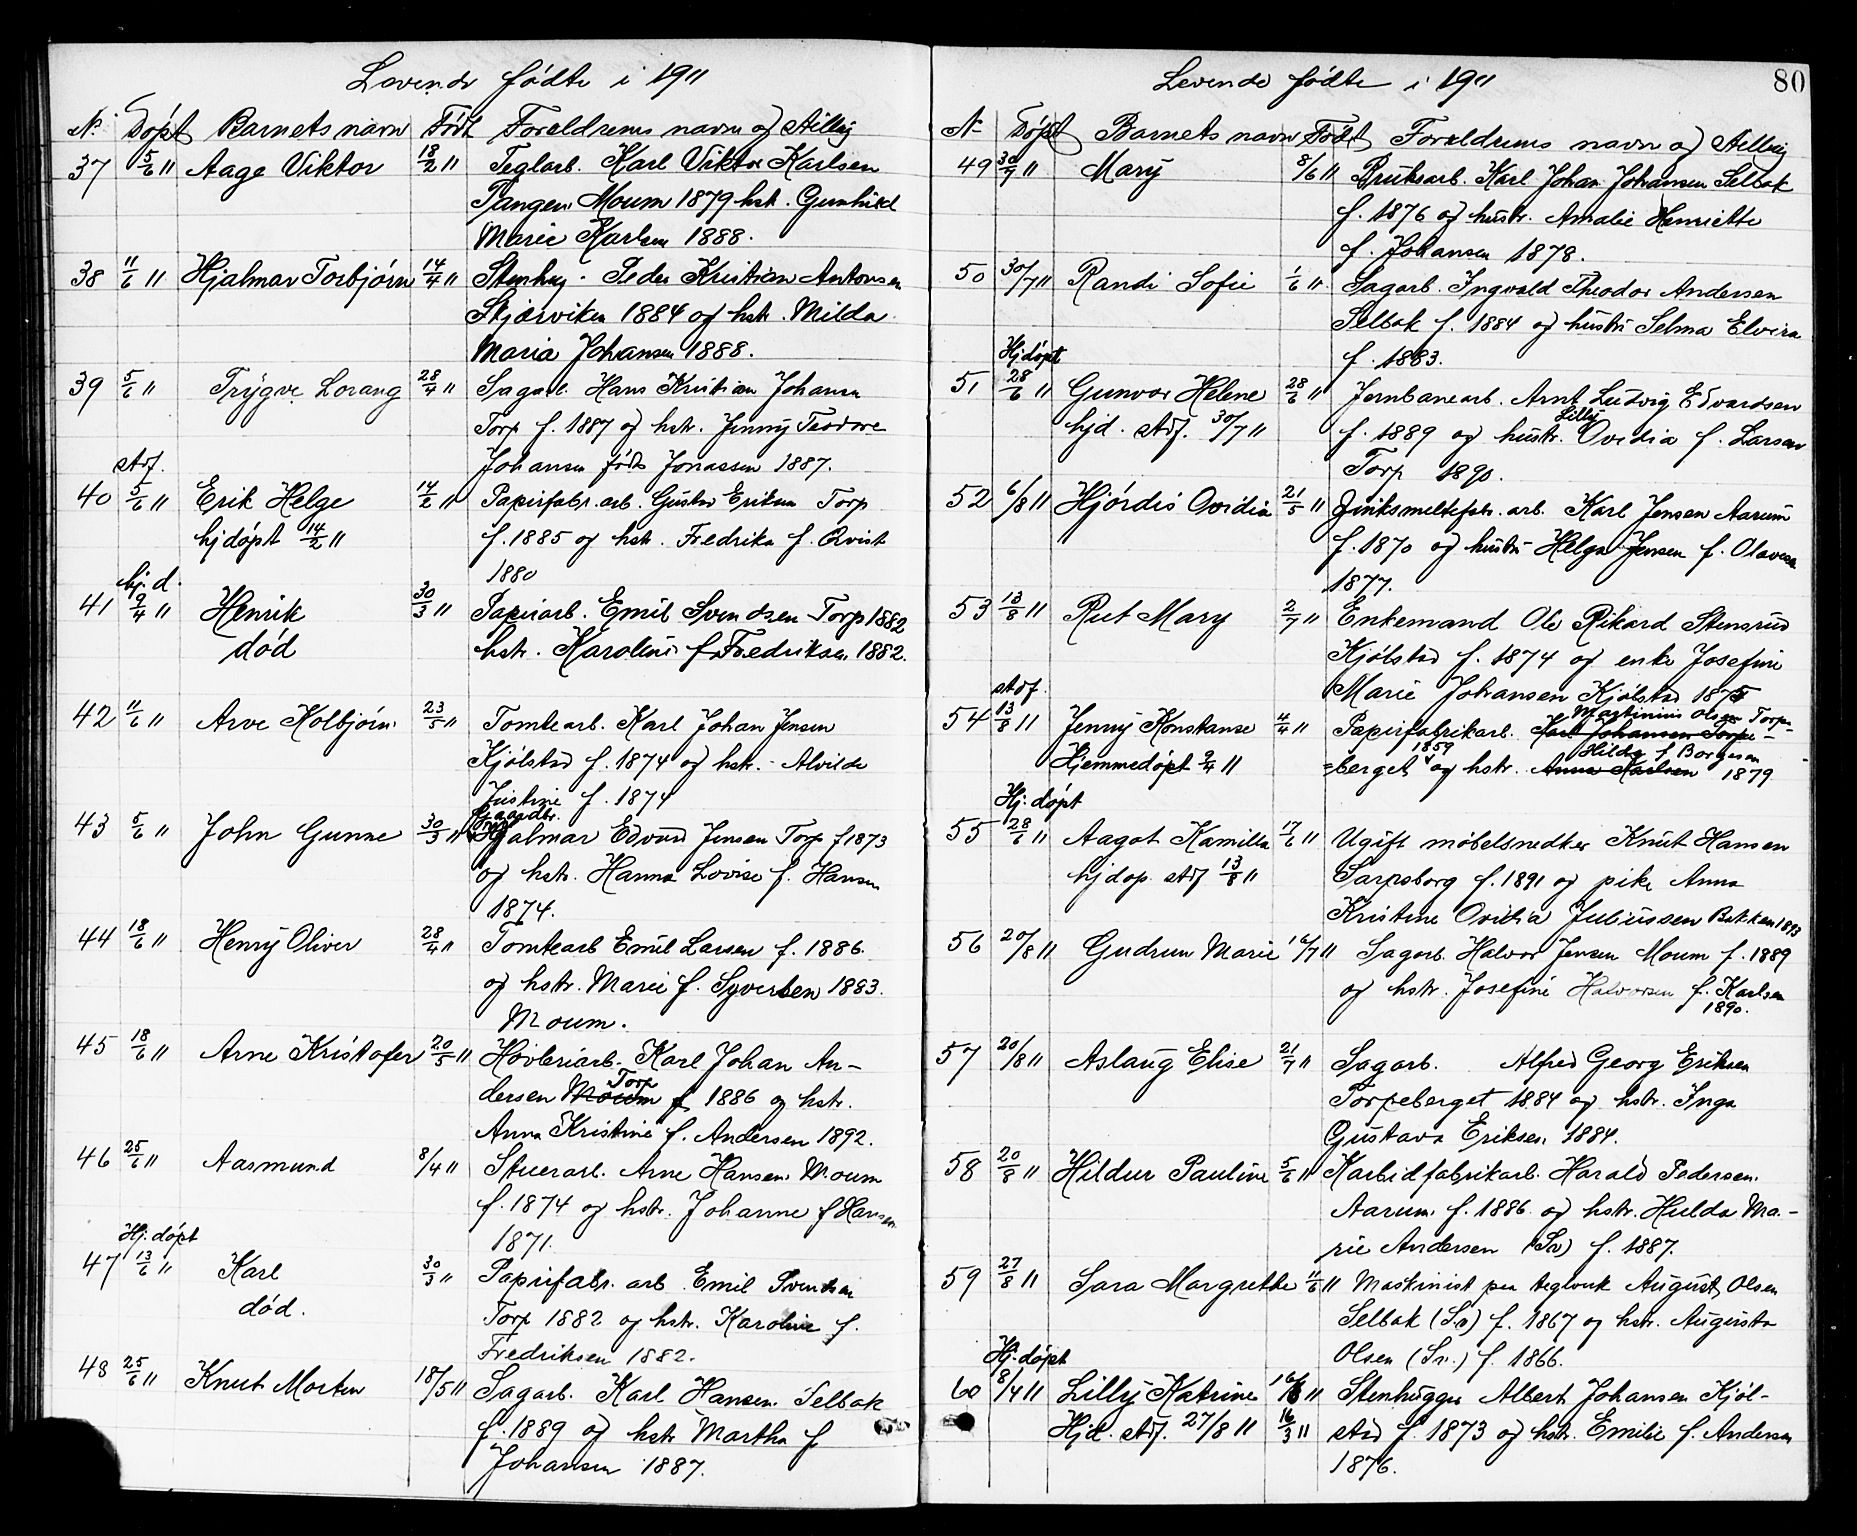 Levende fødte i 1911
No Døpt Barnets navn Født Foreldrenes navn og stilling
37 5/6 11 Aage Viktor 18/2 11 Teglarb. Karl Viktor Karlsen
Tangen Moum 1879 hst. Gunhild
Marie Karlsen 1888.
38 11/6 11 Hjalmar Torbjørn 14/4 11 Stenhug. Peder Kristian Antonsen
Skjærviken 1884 og hstr. Milda
Maria Johansen 1888.
39 5/6 11 Trygve Lorang 28/4 11 Sagarb. Hans Kristian Johansen
Torp f. 1887 og hstr. Jenny Teodore
Johansen født Jonassen 1887.
stdf.
40 5/6 11 Erik Helge 14/2 11 Papirfabr. arb. Gustav Eriksen Torp
hjdøpt 14/2 11 f. 1885 og hstr. Fredrika f. Qvist
1880
hj. d.
41 9/4 11 Henrik 30/3 11 Papirarb. Emil Svendsen Torp 1882
død hstr. Karoline f. Fredriksen 1882.
42 11/6 11 Arve Kolbjørn 23/5 11 Tomtearb. Karl Johan Jensen
Kjølstad f. 1874 og hstr. Alvilde
Justine f. 1874
43 5/6 11 John Gunne 30/3 11 Gaardbr. Hjalmar Edvard Jensen Torp f 1873
og hstr. Hanna Lovise f. Hansen
1874.
44 18/6 11 Henry Oliver 28/4 11 Tomtearb Emil Larsen f. 1886.
og hstr. Marie f. Syversen 1883.
Moum.
45 18/6 11 Arne Kristofer 20/5 11 Høvleriarb. Karl Johan An-
dersen Moum Torp f. 1886 og hstr.
Anna Kristine f. Andersen 1892.
46 25/6 11 Aasmund 8/4 11 Stuerarb. Arne Hansen Moum
f. 1874 og hstr. Johanne f Hansen
1871.
Hj. døpt
47 13/6 11 Karl 30/3 11 Papirfabr. arb. Emil Svendsen
død. Torp 1882 og hstr. Karoline f.
Fredriksen 1882.
48 25/6 11 Knut Morten 18/5 11 Sagarb. Karl Hansen Selbak
f. 1889 og hstr Martha f
Johansen 1887.
Levende fødte i 1911 80
No Døpt Barnets navn Født Foreldrenes navn og stilling
49 30/7 11 Mary 8/6 11 Bruksarb. Karl Johan Johansen Selbak
f. 1876 og hustr. Amalie Henriette
f. Johansen 1878.
50 30/7 11 Randi Sofie 1/6 11 Sagarb. Ingvald Theodor Andersen
Selbak f. 1884 og hustr Selma Elvira
f. 1883.
Hjdøpt
51 28/6 11 Gunvor Helene 28/6 11 Jernbanearb. Arnt Ludvig Edvardsen
hjd. stdf. 30/7 11 f. 1889 og hustr. Lilly Ovidia f. Larsen
Torp 1890.
52 6/8 11 Hjørdis Ovidia 21/5 11 Zinksmeltefabr. arb. Karl Jensen Aarum
f. 1870 og hustr Helga Jensen f. Olavesen
1877.
53 13/8 11 Rut Mary 2/7 11 Enkemand Ole Rikard Stensrud
Kjølstad f. 1874 og enke Josefine
Marie Johansen Kjølstad 1875
stdf.
54 13/8 11 Jenny Konstanse 4/4 11 Papirfabrikarb. Karl Johansen Torpe- Martinius Olsen Torps-
Hjemmedøpt 9/4 11 =berget 1859 og hstr. Anna Karlsen Hilda f Borgesen 1879
Hj. døpt
55 28/6 11 Aagot Kamilla 17/6 11 Ugift møbelsnedker Knut Hansen
hjdøp. stdf 13/8 11 Sarpsborg f. 1891 og pike Anna
Kristine Ovidia Juliussen 1893
56 20/8 11 Gudrun Marie 16/7 11 Sagarb. Halvor Jensen Moum f. 1889
og hstr. Josefine Halvorsen f. Karlsen
1890.
57 20/8 11 Aslaug Elise 21/7 11 Sagarb. Alfred Georg Eriksen
Torpeberget 1884 og hstr. Inga
Gustava Eriksen 1884.
58 20/8 11 Hildur Pauline 5/6 11 Karbidfabrikarb. Harald Pedersen
Aarum f. 1886 og hstr. Hulda Ma-
rie Andersen (Sv) f. 1887.
59 27/8 11 Sara Margrethe 11/6 11 Maskinist paa teglverk August Olsen
Selbak (Sv) f. 1867 og hstr. Augusta
Olsen (Sv.) f. 1866.
Hj. døpt
60 8/4 11 Lilly Katrine 16/3 11 Stenhugger Albert Johansen Kjøl-
Hjd. stdf. 27/8 11 16/3 11 stad f. 1873 og hstr. Emilie f. Andersen
1876.